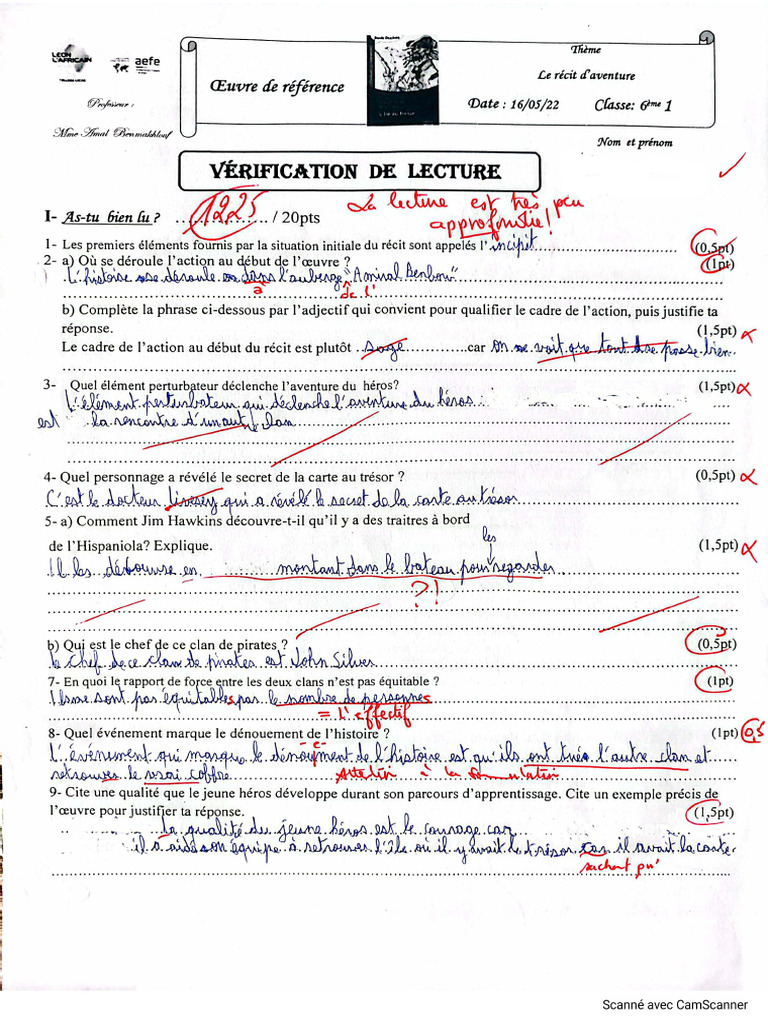 LÉON
L'AFRICAIN
aefe
Professeur :
Mme Amal Benmakhlouf
Œuvre de référence
Thème
Le récit d'aventure
Date : 16/05/22 Classe: 6ème 1
Nom et prénom
VÉRIFICATION DE LECTURE
La lecture est très peu
approfondie!
I- As-tu bien lu ? 12.25 / 20pts
1- Les premiers éléments fournis par la situation initiale du récit sont appelés l'incipit (0,5pt)
2- a) Où se déroule l'action au début de l'œuvre ? (1pt)
L'histoire se déroule dans l'auberge "Amiral Benbow"
à de l'
b) Complète la phrase ci-dessous par l'adjectif qui convient pour qualifier le cadre de l'action, puis justifie ta
réponse. (1,5pt)
Le cadre de l'action au début du récit est plutôt sage car on ne voit que tout se passe bien
3- Quel élément perturbateur déclenche l'aventure du héros? (1,5pt)
L'élément perturbateur qui déclenche l'aventure du héros
est la rencontre d'un autre clan
4- Quel personnage a révélé le secret de la carte au trésor ? (0,5pt)
C'est le docteur livesey qui a révélé le secret de la carte au trésor
5- a) Comment Jim Hawkins découvre-t-il qu'il y a des traitres à bord
de l'Hispaniola? Explique. (1,5pt)
les
Il les découvre en montant dans le bateau pour regarder
?!
b) Qui est le chef de ce clan de pirates ? (0,5pt)
le chef de ce clan de pirates est John Silver
7- En quoi le rapport de force entre les deux clans n'est pas équitable ? (1pt)
Ils ne sont pas équitables par le nombre de personnes
= l'effectif
8- Quel événement marque le dénouement de l'histoire ? (1pt) 0,5
L'événement qui marque le dénoyment de l'histoire est qu'ils ont tués l'autre clan et
retrouves le vrai coffre Attention à la formulation
9- Cite une qualité que le jeune héros développe durant son parcours d'apprentissage. Cite un exemple précis de
l'œuvre pour justifier ta réponse. (1,5pt)
la qualité du jeune héros est le courage car
il a aidé son équipe à retrouver l'île où il y avait le trésor car il avait la carte.
sachant qu'
Scanné avec CamScanner